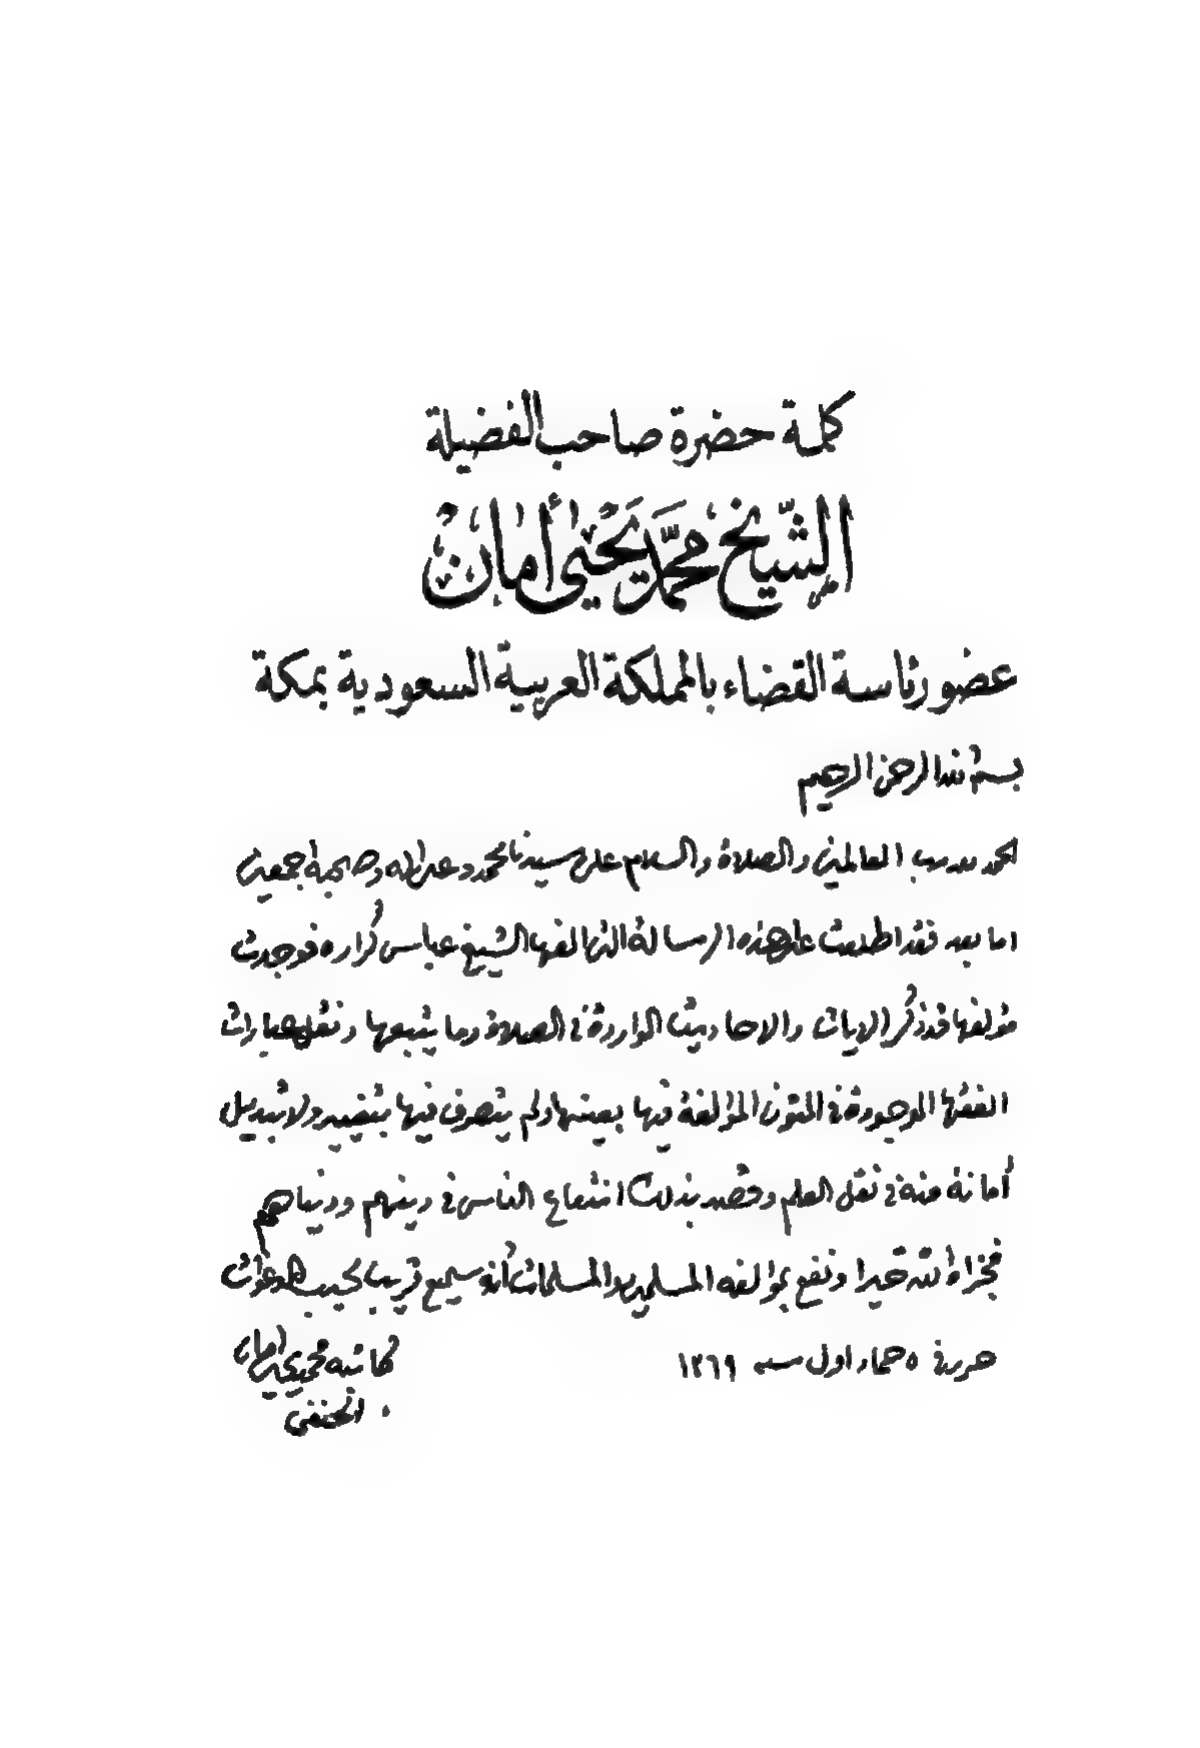 كلمة حضرة صاحب الفضيلة
الشيخ محمد يحيى أمان
عضو رئاسة القضاء بالمملكة العربية السعودية بمكة
بسم الله الرحمن الرحيم
الحمد لله رب العالمين والصلاة والسلام على سيدنا محمد وعلى اله وصحبه اجمعين
اما بعد فقد اطلعت على هذه الرسالة التى الفها الشيخ عباس كراره فوجدت
مؤلفها قد ذكر الايات والاحاديث الواردة فى الصلاة وما يتبعها ونقل عبارات
الفقها الموجودة فى المتون المؤلفة فيها بعينها ولم يتصرف فيها بتغيير ولا تبديل
أمانة منه فى نقل العلم وقصد بذلك انتفاع الناس فى دينهم ودنياهم
فجزاه الله خيرا ونفع بمؤلفه المسلمين والمسلمات أنه سميع قريب مجيب الدعوات
حرر فى ٥ جماد اول سنه ١٣٦٩
كاتبه محمد يحيى امان
الحنفى